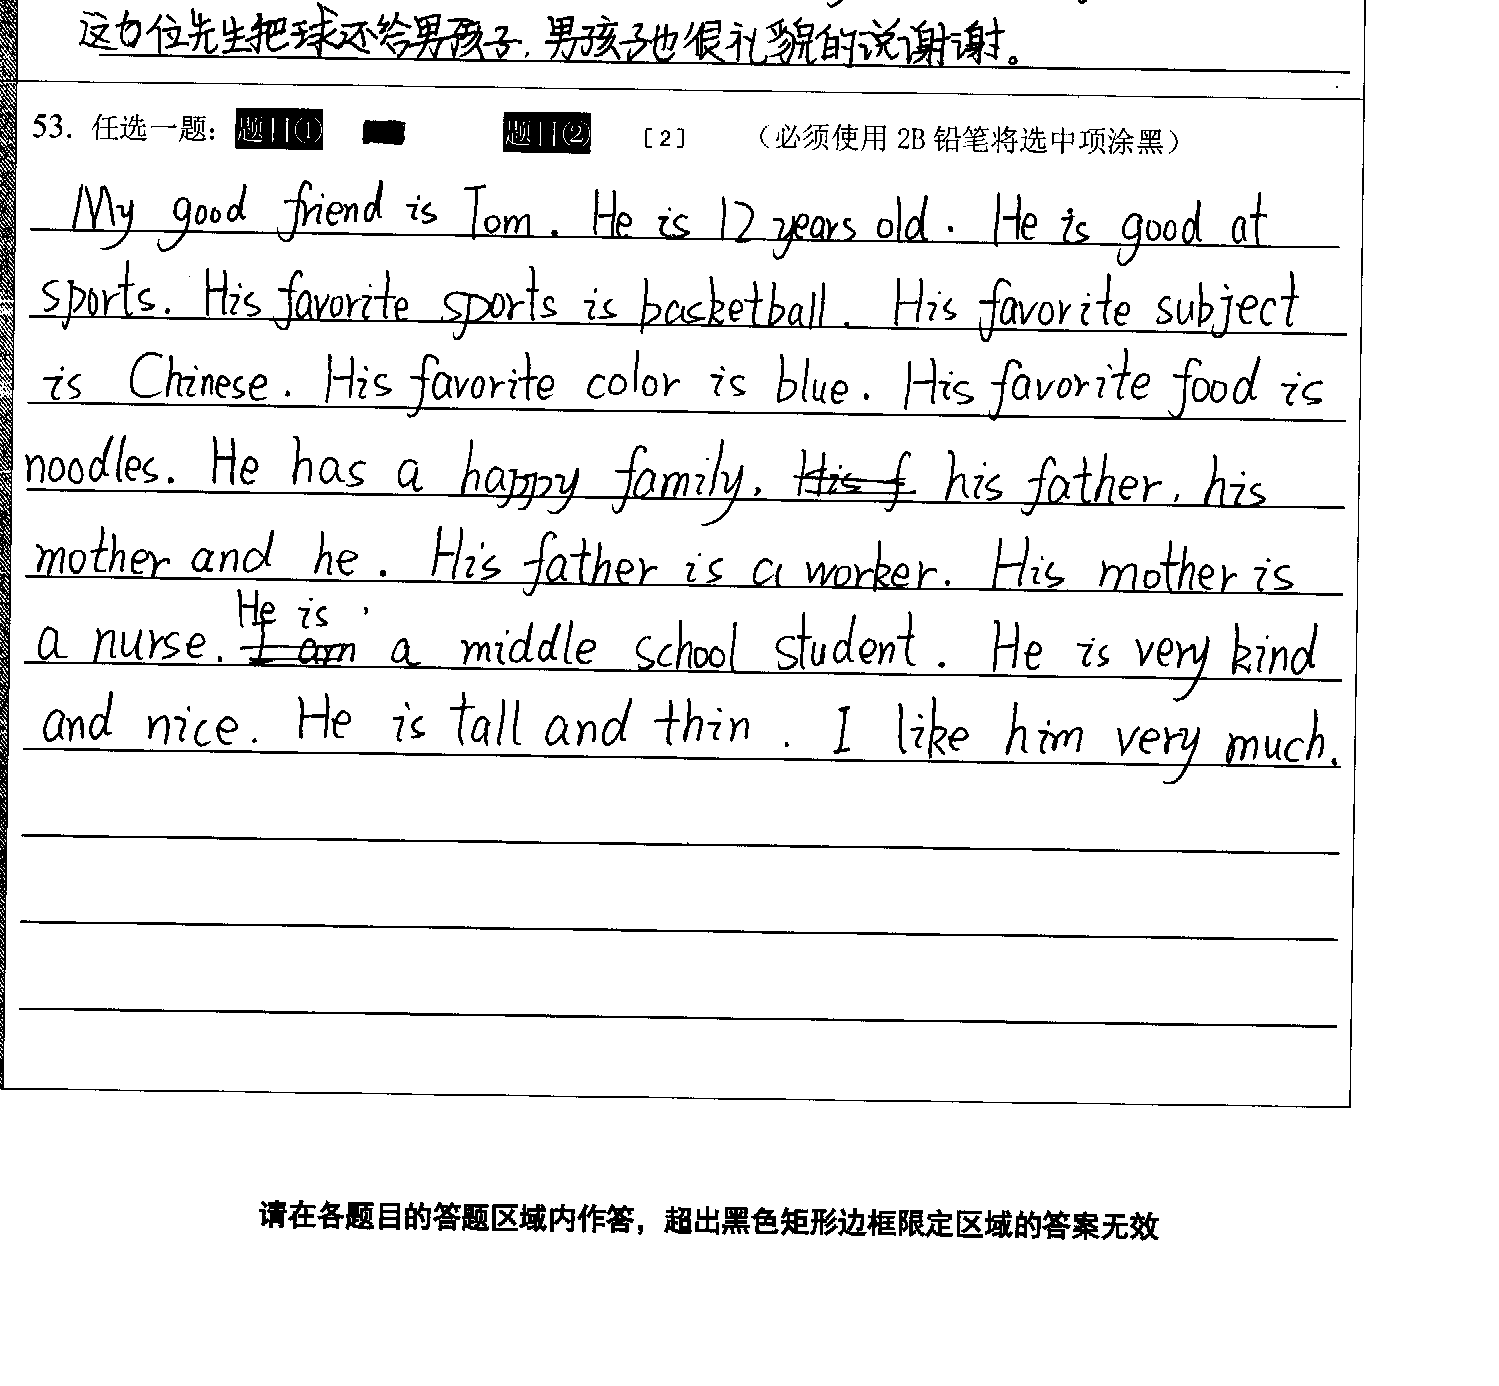 这位先生把球还给男孩子，男孩子也很礼貌的说谢谢。
53. 任选一题：题目① 题目② [2] （必须使用 2B 铅笔将选中项涂黑）
My good friend is Tom. He is 12 years old. He is good at
sports. His favorite sports is basketball. His favorite subject
is Chinese. His favorite color is blue. His favorite food is
noodles. He has a happy family. His f his father, his
mother and he. His father is a worker. His mother is
He is
a nurse. I am a middle school student. He is very kind
and nice. He is tall and thin. I like him very much.
请在各题目的答题区域内作答，超出黑色矩形边框限定区域的答案无效